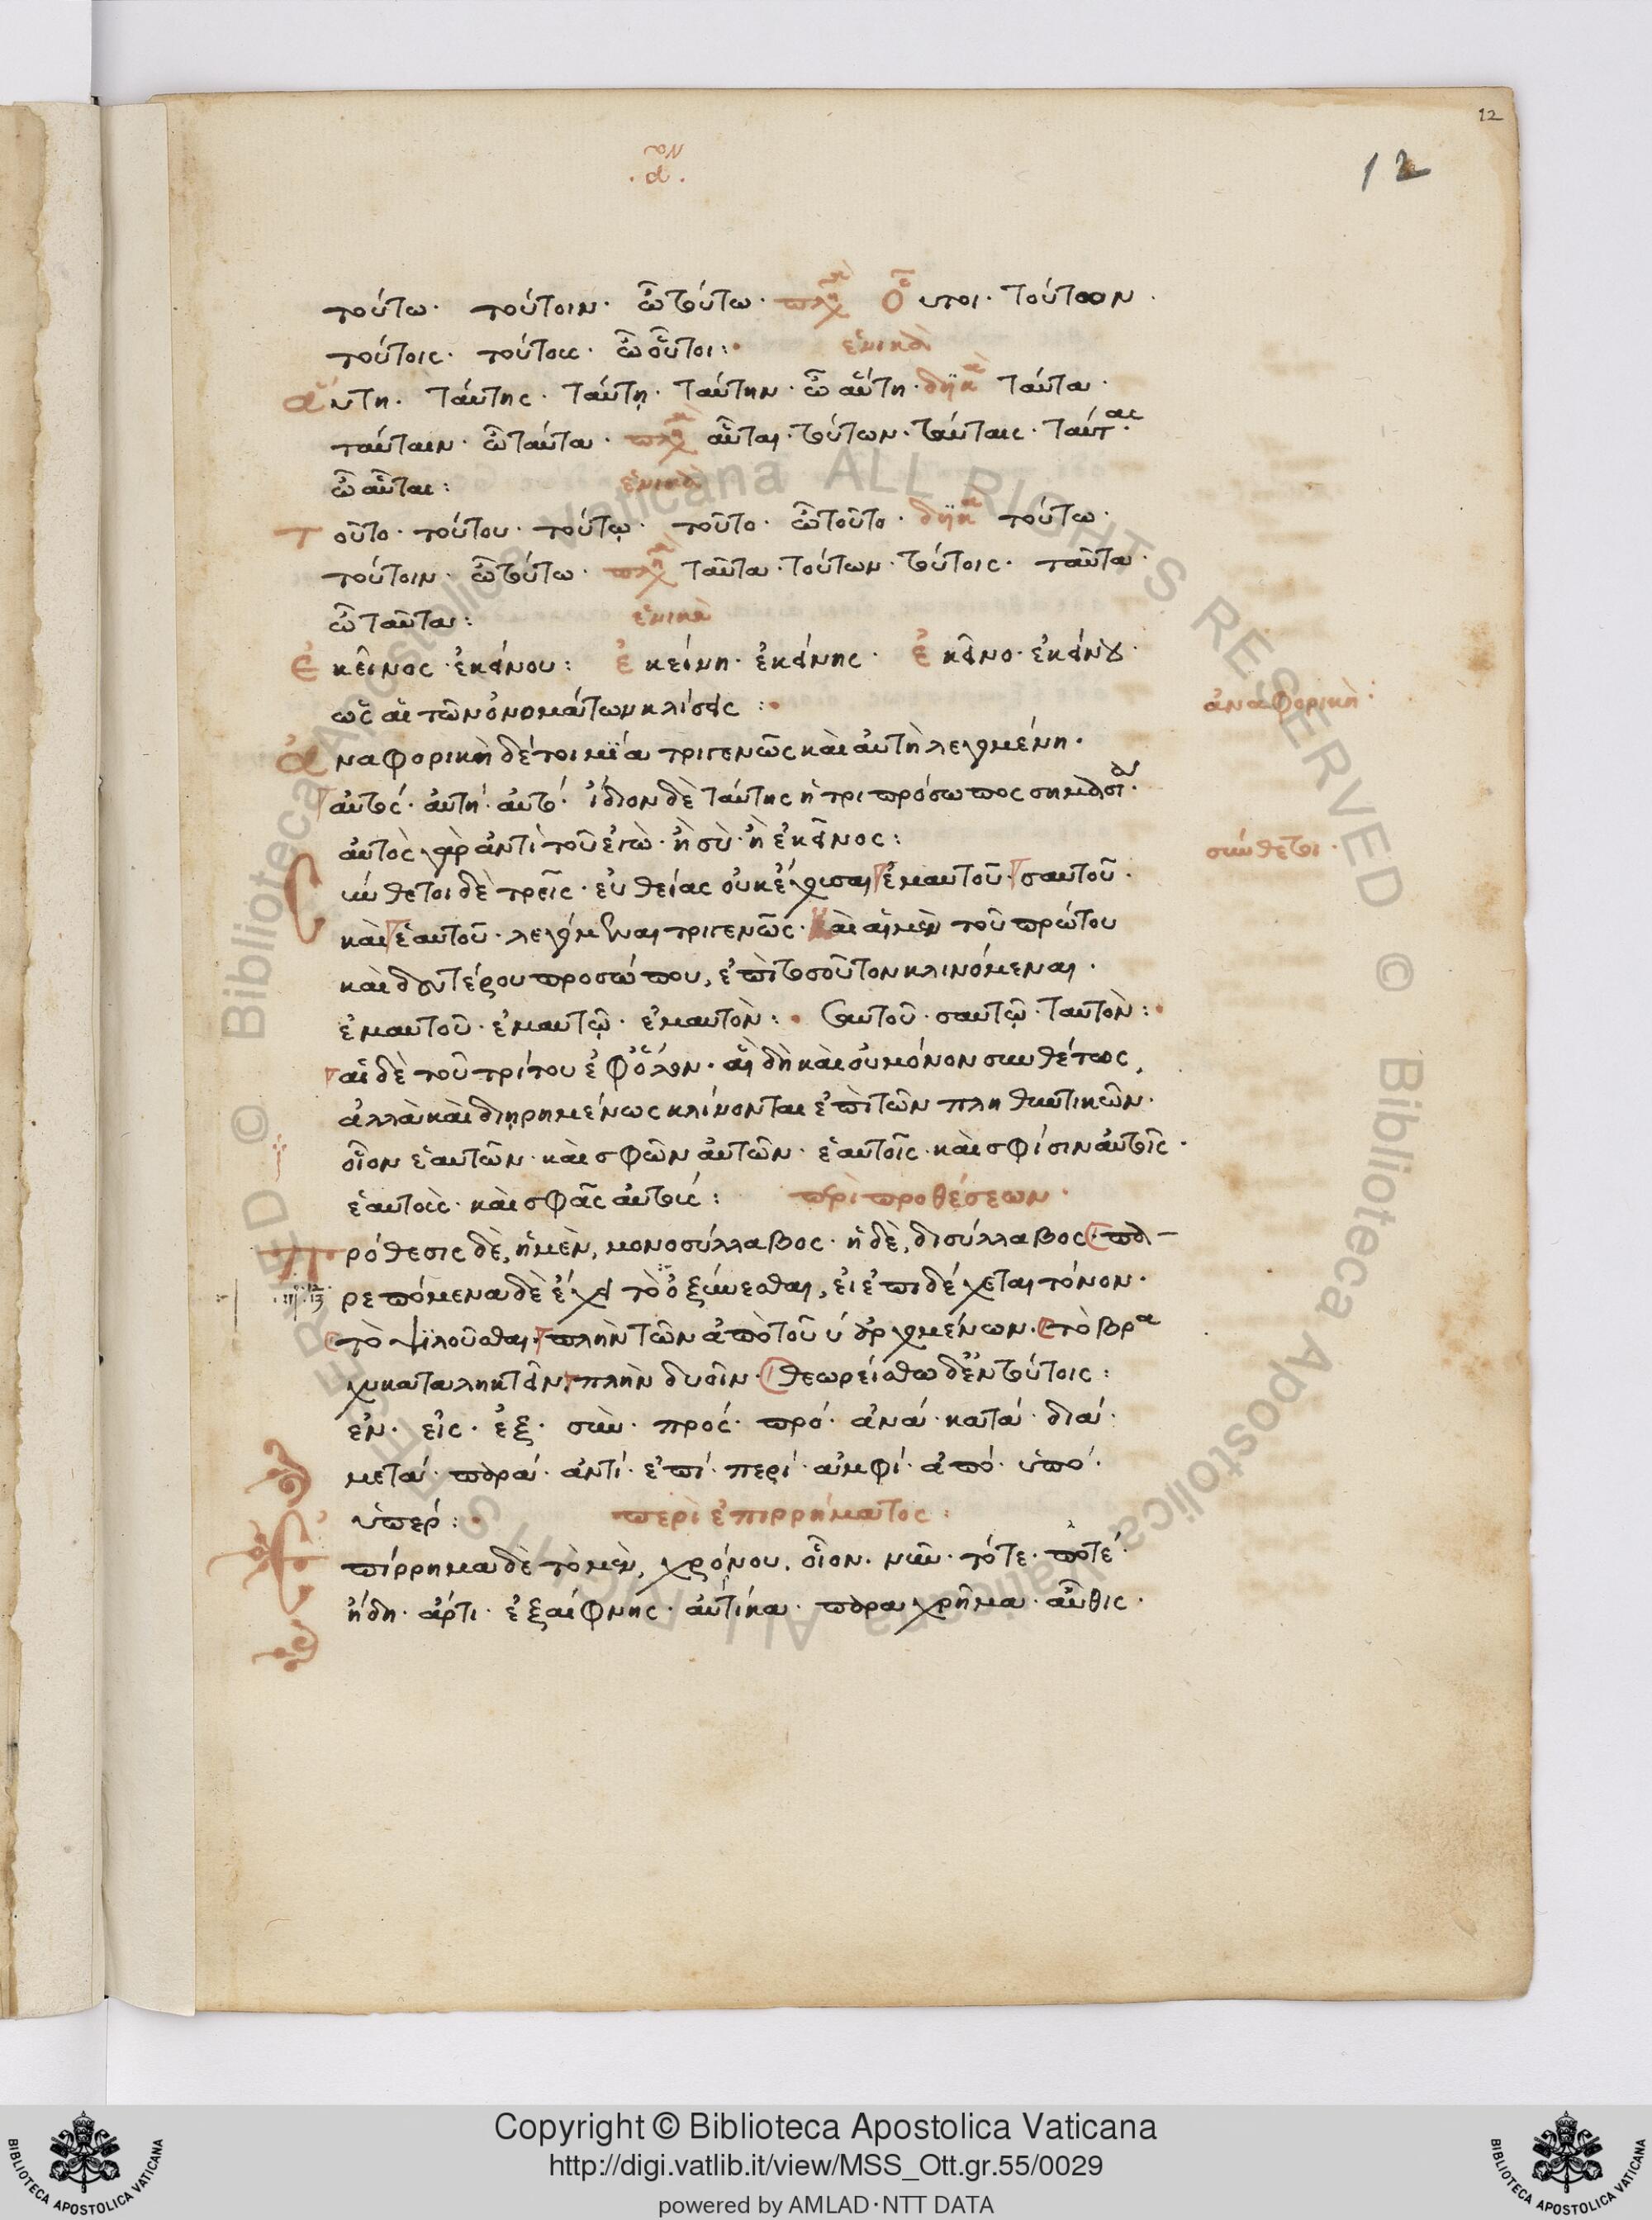 12
12
τούτω· τούτοιν· ὦ τούτω· Οὗτοι· Τούτων·
τούτοις· τούτους· ὦ οὗτοι: ἑνικὰ
αὕτη· ταύτης· ταύτῃ· ταύτην· ὦ αὕτη· δυϊκὰ ταύτα·
ταύταιν· ὦ ταύτα· αὗται· τούτων· ταύταις· ταύτας·
ὦ αὗται: ἑνικὰ
Τοῦτο· τούτου· τούτῳ· τοῦτο· ὦ τοῦτο· δυϊκὰ τούτω·
τούτοιν· ὦ τούτω· ταῦτα· τούτων· τούτοις· ταῦτα·
ὦ ταῦτα: ἑνικὰ
ἐκεῖνος· ἐκείνου: ἐκείνη· ἐκείνης· ἐκεῖνο· ἐκείνου·
ὡς αἱ τῶν ὀνομάτων κλίσεις:
ἀναφορικὴ·
ἀναφορικὴ δέ τοι μία τριγενῶς καὶ αὐτὴ λεγομένη·
αὐτός· αὐτή· αὐτό· ἴδιον δὲ ταύτης ἡ τριπρόσωπος
αὐτὸς γὰρ ἀντὶ τοῦ ἐγὼ· ἢ σὺ· ἢ ἐκεῖνος:
σύνθετοι·
Σύνθετοι δὲ τρεῖς· εὐθείας οὐκ ἔχουσαι ἐμαυτοῦ· σαυτοῦ·
καὶ ἑαυτοῦ· λεγόμεναι τριγενῶς· Καὶ αἱ μὲν τοῦ πρώτου
καὶ δευτέρου προσώπου, ἐπὶ τοσοῦτον κλινόμεναι·
ἐμαυτοῦ· ἐμαυτῷ· ἐμαυτὸν: σαυτοῦ· σαυτῷ· σαυτὸν:
αἱ δὲ τοῦ τρίτου ἐφ' ὅλων· αἳ δὴ καὶ οὐ μόνον συνθέτως,
ἀλλὰ καὶ διῃρημένως κλίνονται ἐπὶ τῶν πληθυντικῶν·
οἷον ἑαυτῶν· καὶ σφῶν αὐτῶν· ἑαυτοῖς· καὶ σφίσιν αὐτοῖς·
ἑαυτοὺς· καὶ σφᾶς αὐτούς: περὶ προθέσεων·
Πρόθεσις δὲ, ἡ μὲν, μονοσύλλαβος· ἡ δὲ, δισύλλαβος· πα-
ρεπόμενα δὲ ἔχει τὸ ὀξύνεσθαι, εἰ ἐπιδέχεται τόνον·
τὸ ψιλοῦσθαι· πλὴν τῶν ἀπὸ τοῦ υ ἀρχομένων· τὸ βρα
χυκαταληκτεῖν, πλὴν δυοῖν· θεωρείσθω δ' ἐν τούτοις:
ἐν· εἰς· ἐξ· σὺν· πρός· πρό· ἀνά· κατά· διά·
μετά· παρά· ἀντί· ἐπί· περί· ἀμφί· ἀπό· ὑπό·
ὑπερ: περὶ ἐπιρρήματος:
Ἐπίρρημα δὲ τὸ μὲν, χρόνου, οἷον· νῦν· τότε· ποτέ·
ἤδη· ἄρτι· ἐξαίφνης· αὐτίκα· παραχρῆμα· αὖθις·
Copyright © Biblioteca Apostolica Vaticana
http://digi.vatlib.it/view/MSS_Ott.gr.55/0029
powered by AMLAD·NTT DATA